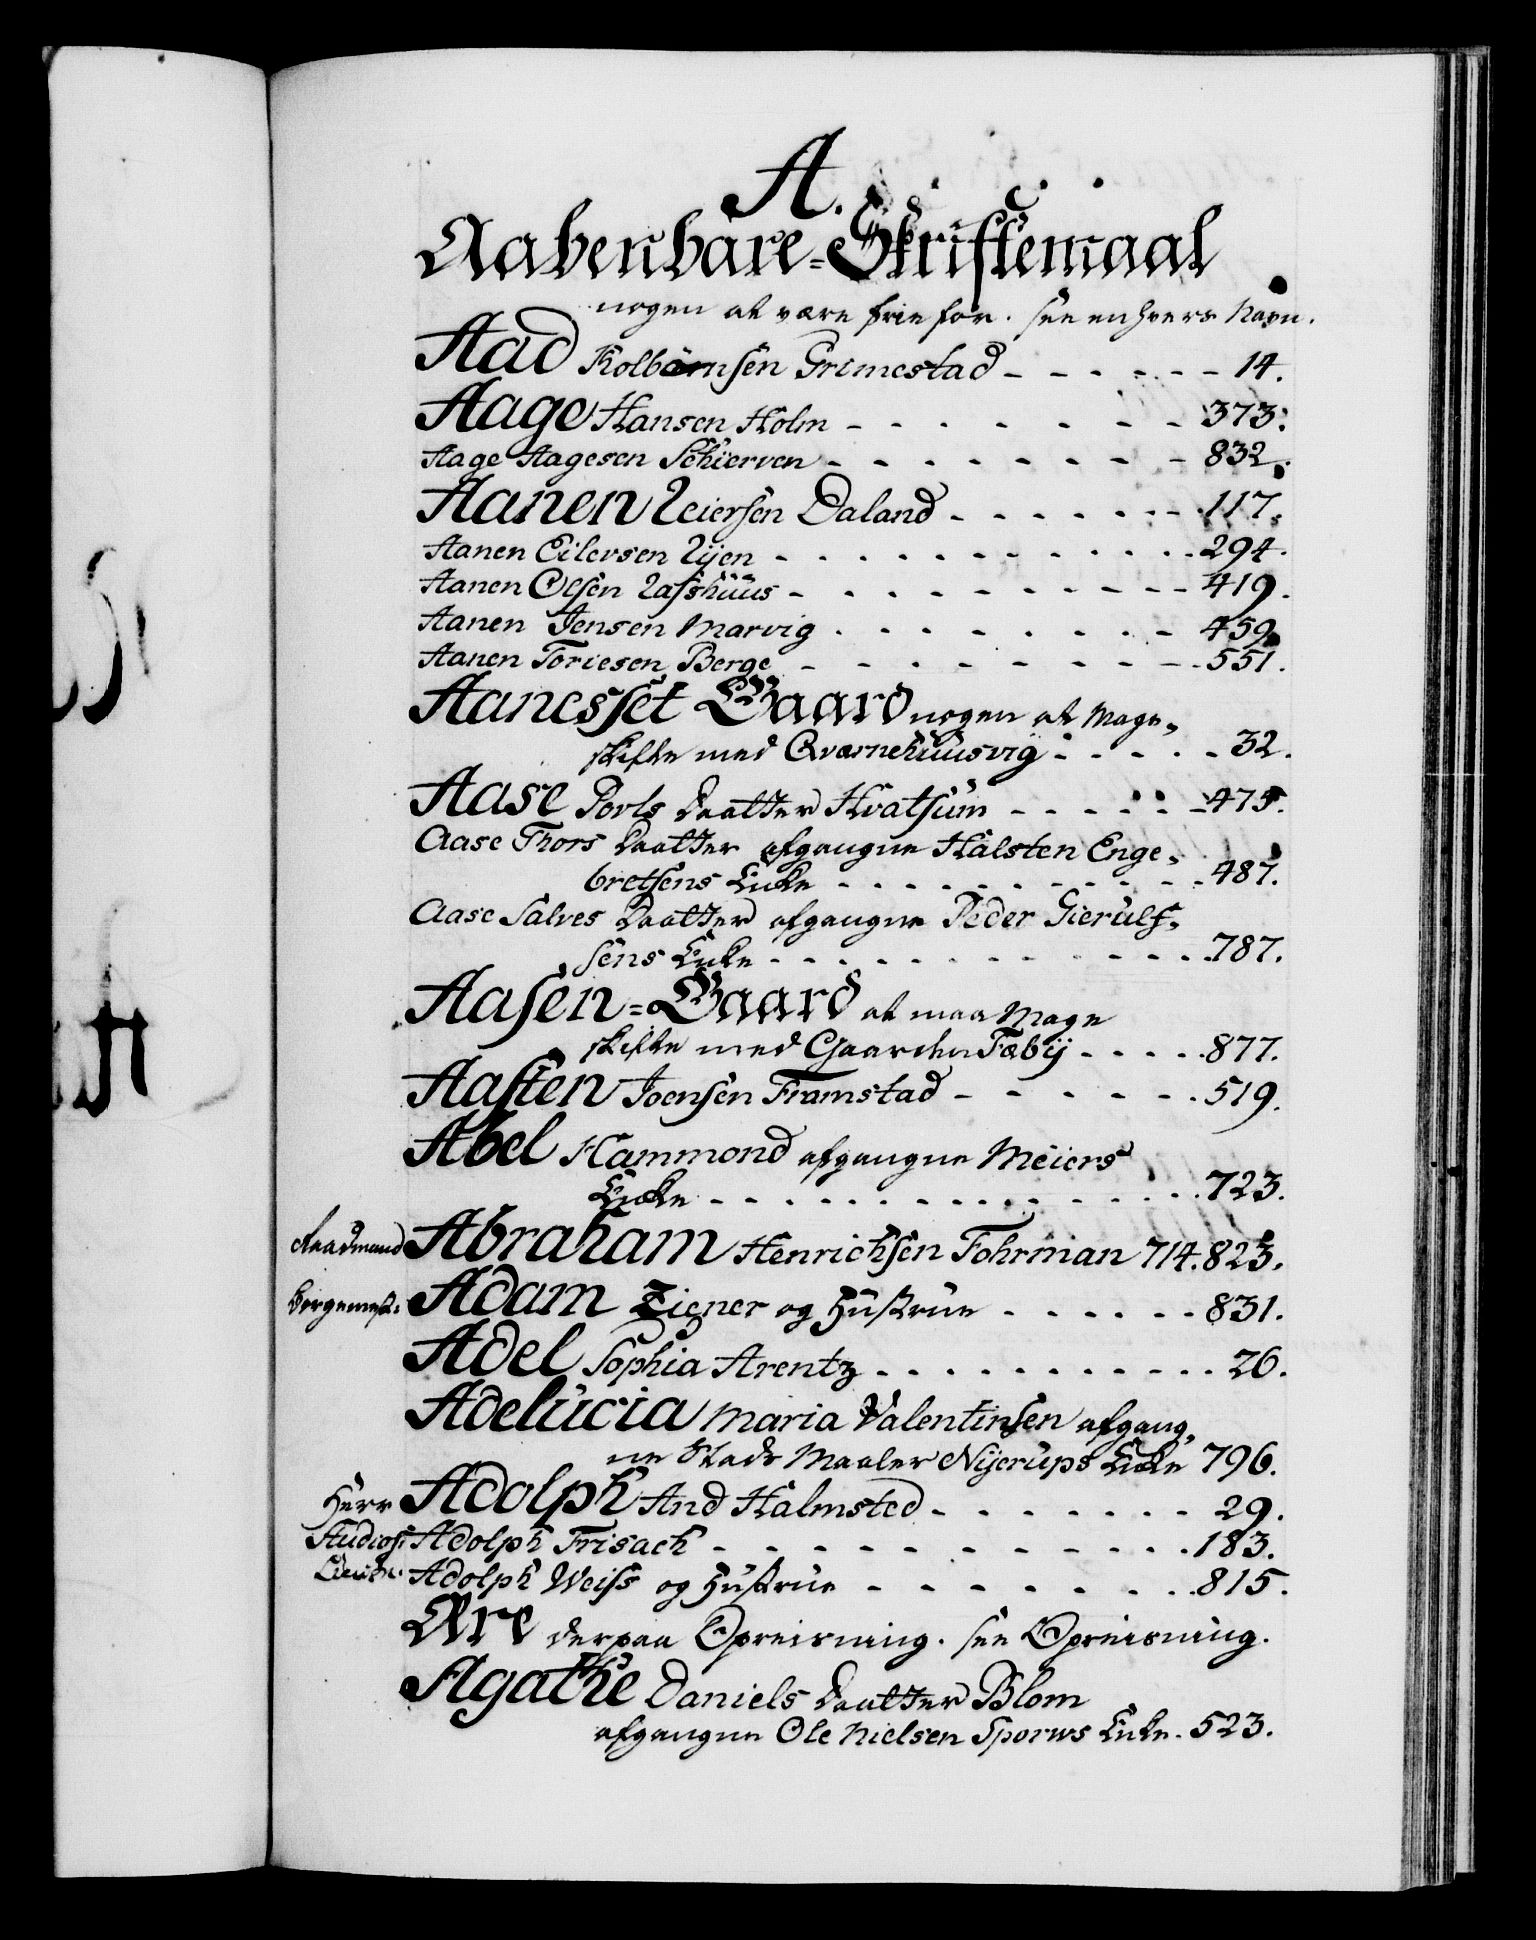 A.
Aabenbare-Skriftemaal
nogen at være frie for. see enhvers Navn.
Aad Kolbørnsen Grimestad - - - - - - 14.
Aage Hansen Holm - - - - - - - 373.
Aage Aagesen Schierven - - - - - - - - 832.
Aanen Leiersen Daland - - - - - - - 117.
Aanen Eilersen Lijen - - - - - - - - - - - - 294.
Aanen Olsen Lasshuus - - - - - - - - - - - 419.
Aanen Jensen Marvig - - - - - - - - - 459.
Aanen Toriesen Berge - - - - - - - - - - 551.
Aanesset Gaard nogen at Mage-
skifte med Qværnehuusvig - - - - - 32.
Aase Povls Daatter Hvatsum - - - - - - 475.
Aase Thors Daatter afgangne Halsten Enge-
bretsens Enke - - - - - - - - - - - 487.
Aase Salves Daatter afgangne Peder Gierulf-
sens Enke - - - - - - - - - - - - - 787.
Aasen-Gaard at maa Mage
skifte med Gaarden Fæbÿ - - - - - 877.
Aasten Joensen Framstad - - - - - - - 519.
Abel Hammond afgangne Meiers
Enke - - - - - - - - - - - - - - - 723.
Raadmand Abraham Henrichsen Fohrman 714. 823.
Borgemest: Adam Ziener og Hustrue - - - - - - 831.
Adel Sophia Arentz - - - - - - - - - - - 26.
Adelucia Maria Valentinsen afgang-
ne Stads Maaler Nÿerups Enke 796.
Herr Adolph And Halmsted - - - - - - - 29.
Studios: Adolph Frisach - - - - - - - - - - - - 183.
Lieut: Adolph Weiss og Hustrue - - - - - - - - 815.
Ære derpaa Opreisning. see Opreisning.
Agathe Daniels Daatter Blom
afgangne Ole Nielsen Sporws Enke. 523.